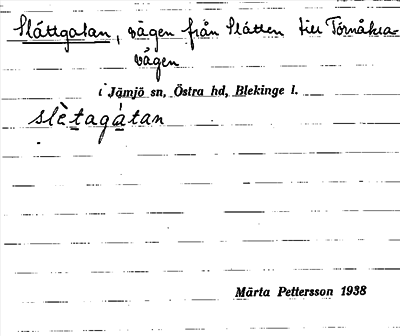 Slättgatan, vägen från Slätten till Törnåkra-
vägen
i Jämjö sn, Östra hd, Blekinge l.
slètagátan
Märta Pettersson 1938